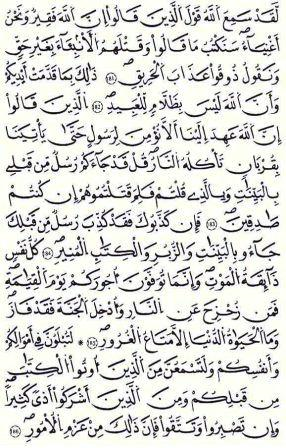 لَّقَدْ سَمِعَ ٱللَّهُ قَوْلَ ٱلَّذِينَ قَالُوٓا۟ إِنَّ ٱللَّهَ فَقِيرٌ وَنَحْنُ
أَغْنِيَآءُ ۘ سَنَكْتُبُ مَا قَالُوا۟ وَقَتْلَهُمُ ٱلْأَنۢبِيَآءَ بِغَيْرِ حَقٍّ
وَنَقُولُ ذُوقُوا۟ عَذَابَ ٱلْحَرِيقِ ١٨١ ذَٰلِكَ بِمَا قَدَّمَتْ أَيْدِيكُمْ
وَأَنَّ ٱللَّهَ لَيْسَ بِظَلَّامٍ لِّلْعَبِيدِ ١٨٢ ٱلَّذِينَ قَالُوٓا۟
إِنَّ ٱللَّهَ عَهِدَ إِلَيْنَآ أَلَّا نُؤْمِنَ لِرَسُولٍ حَتَّىٰ يَأْتِيَنَا
بِقُرْبَانٍ تَأْكُلُهُ ٱلنَّارُ ۗ قُلْ قَدْ جَآءَكُمْ رُسُلٌ مِّن قَبْلِى
بِٱلْبَيِّنَٰتِ وَبِٱلَّذِى قُلْتُمْ فَلِمَ قَتَلْتُمُوهُمْ إِن كُنتُمْ
صَٰدِقِينَ ١٨٣ فَإِن كَذَّبُوكَ فَقَدْ كُذِّبَ رُسُلٌ مِّن قَبْلِكَ
جَآءُو بِٱلْبَيِّنَٰتِ وَٱلزُّبُرِ وَٱلْكِتَٰبِ ٱلْمُنِيرِ ١٨٤ كُلُّ نَفْسٍ
ذَآئِقَةُ ٱلْمَوْتِ ۗ وَإِنَّمَا تُوَفَّوْنَ أُجُورَكُمْ يَوْمَ ٱلْقِيَٰمَةِ ۖ
فَمَن زُحْزِحَ عَنِ ٱلنَّارِ وَأُدْخِلَ ٱلْجَنَّةَ فَقَدْ فَازَ ۗ
وَمَا ٱلْحَيَوٰةُ ٱلدُّنْيَآ إِلَّا مَتَٰعُ ٱلْغُرُورِ ١٨٥ ۞ لَتُبْلَوُنَّ فِىٓ أَمْوَٰلِكُمْ
وَأَنفُسِكُمْ وَلَتَسْمَعُنَّ مِنَ ٱلَّذِينَ أُوتُوا۟ ٱلْكِتَٰبَ
مِن قَبْلِكُمْ وَمِنَ ٱلَّذِينَ أَشْرَكُوٓا۟ أَذًى كَثِيرًا ۚ
وَإِن تَصْبِرُوا۟ وَتَتَّقُوا۟ فَإِنَّ ذَٰلِكَ مِنْ عَزْمِ ٱلْأُمُورِ ١٨٦